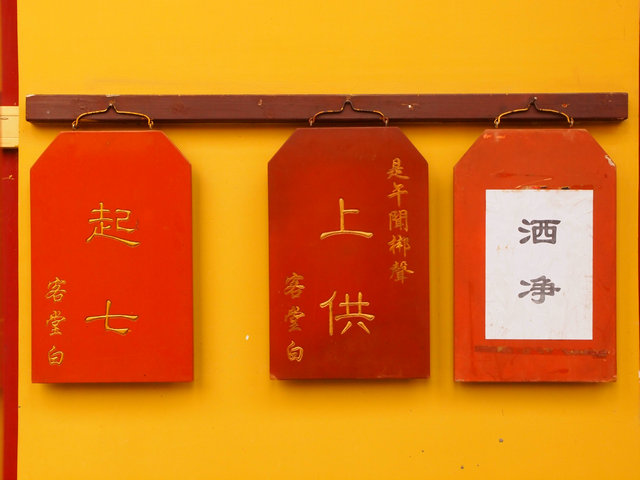 起七
客堂白
是午聞梆聲
上供
客堂白
洒净